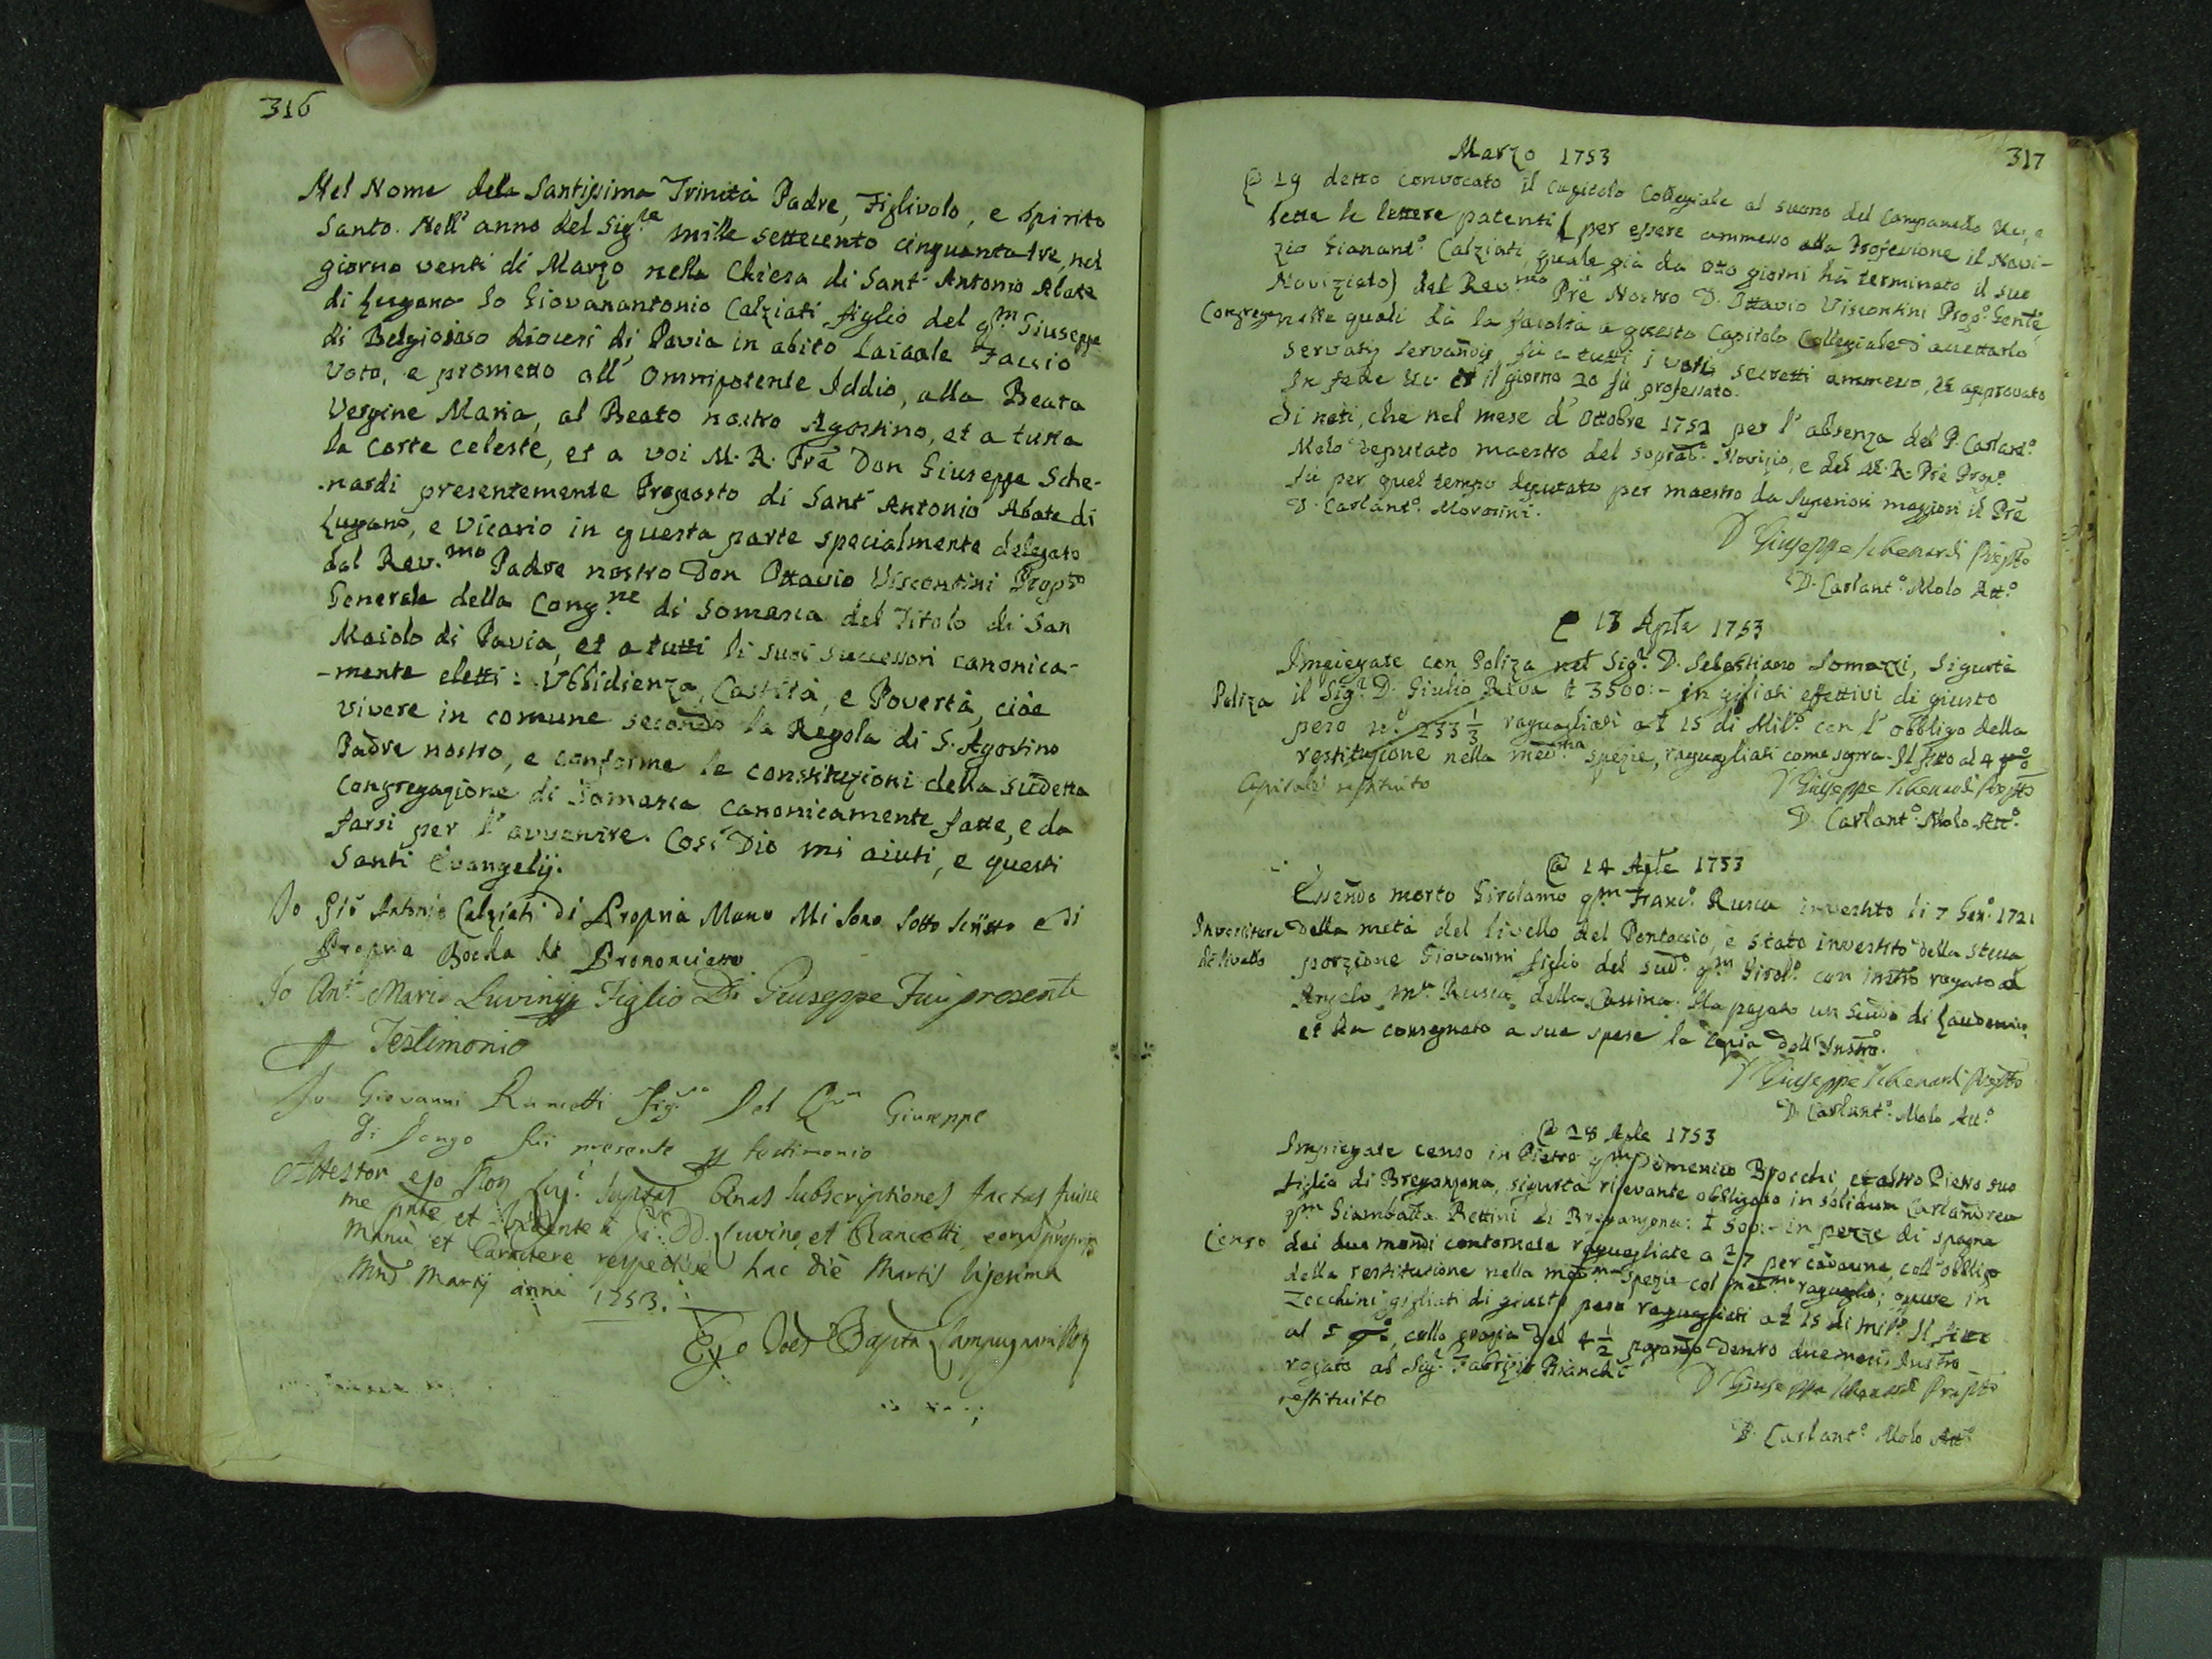 316
Nel Nome della Santissima Trinità Padre, Figlivolo, e Spirito
Santo. Nell' anno del Sig.re mille settecento cinquanta tre, nel
giorno venti di Marzo nella Chiesa di Sant' Antonio Abate
di Lugano Io Giovanantonio Calziati figlio del qm Giuseppe
di Belgioioso diocesi di Pavia in abito laicale Faccio
Voto, e prometto all' Omnipotente Iddio, alla Beata
Vergine Maria, al Beato nostro Agostino, et a tutta
la Corte Celeste, et a voi M. R. Prē Don Giuseppe Sche-
-nardi presentemente Preposto di Sant' Antonio Abate di
Lugano, e Vicario in questa parte specialmente delegato
dal Rev.mo Padre nostro Don Ottavio Viscontini Propto
Generale della Cong.ne di Somasca del Titolo di San
Maiolo di Pavia, et a tutti li suoi successori canonica-
-mente eletti: Ubbidienza, Castità, e Povertà, cioè
vivere in comune secondo la Regola di S. Agostino
Padre nostro, e conforme le constituzioni della sudetta
Congregazione di Somasca canonicamente fatte, e da
farsi per l'avvenire. Così Dio mi aiuti, e questi
Santi Evangelij.
Io Gio Antonio Calziati di Propria Mano Mi Sono Sotto Scritto e di
Propria Bocha Prononciato
Io Ant. Mari Luvinij Figlio Di Giuseppe Fui presente
Testimonio
Io Giovanni Rancotti Fig.o Del Qm Giuseppe
di fui presente p testimonio
Attestor ego Subscriptiones factas fuisse
me pnte, et vidente a DD. Luvino, et Rancotti,
manu, et Caractere respective hac die Martis Vigesima
Martij anni 1753.
Ego Bapta Campagnani
317
Marzo 1753
@ 19 detto convocato il Capitolo Collegiale al suono del Campanello &c, e
lette le lettere patenti (per essere ammesso alla Professione il Novi-
zio Gianant.o Calziati, quale già da otto giorni hà terminato il suo
Noviziato) del Rev.mo Prē Nostro D. Ottavio Viscontini Prop.o Genle
Congrega nelle quali dà la facoltà a questo Capitolo Collegiale d' accettarlo
servatis servandis, fù a tutti i voti secretti ammesso, et approvato
In fede &c. et il giorno 20 fù professato.
Si noti, che nel mese d' Ottobre 1752 per l'absenza del P. Carlant.o
Molo deputato maestro del soprad.o Novizio, e del M. R. Prē Prop.o
fù per quel tempo deputato per maestro da Superiori maggiori il Prē
D. Carlant.o Morosini.
D Giuseppe Schenardi Prepto
D. Carlant.o Molo Att.o
@ 13 Aple 1753
Impiegate con Poliza nel Sig.r D. Sebastiano Somazzi, Sigurtà
Poliza il Sig.r D. Giulio Riva £ 3500:- in gigliati effettivi di giusto
peso n.o 233 1/3 raguagliati a £ 15 di Mil.o con l'obbligo della
restituzione nella med.ma spezie, raguagliati come sopra. Il fitto al 4 p%
Capitale restituito
D Giuseppe Schenardi Prepto
D. Carlant.o Molo Att.o
@ 14 Aple 1753
Essendo morto Girolamo qm Franc.o Rusca investito li 7 Gen.o 1721
Investitura della metà del livello del Pontaccio, è stato investito della stessa
di livello porzione Giovanni figlio del sud.o qm Girol.o con instro rogato al
Angelo M.a Rusca della Cassina. Ha pagato un Scudo di Laudemio
et ha consegnato a sue spese la Copia dell' Instro.
D Giuseppe Schenardi Prepto
D. Carlant.o Molo Att.o
@ 28 Aple 1753
Impiegate censo in Pietro qm Domenico Brocchi, et altro Pietro suo
figlio di Breganzona, sigurtà rilevante obbligato in solidum Carlandrea
qm Giambatta Rettini di Breganzona: £ 500:- in pezze di spagna
Censo dei due mondi contornate raguagliate a £ 7 per cadauna, coll' obbligo
della restituzione nella med.ma spezie col med.mo raguaglio; ovvero in
Zecchini gigliati di giusto peso raguagliati a £ 15 di Mil.o Il fitto
al 5 p%, colla grazia del 4 1/2 pagando dentro due mesi. Instro
rogato al Sig.r Fabrizio Bianchi
restituito
D Giuseppe Schenardi Prepto
D. Carlant.o Molo Att.o